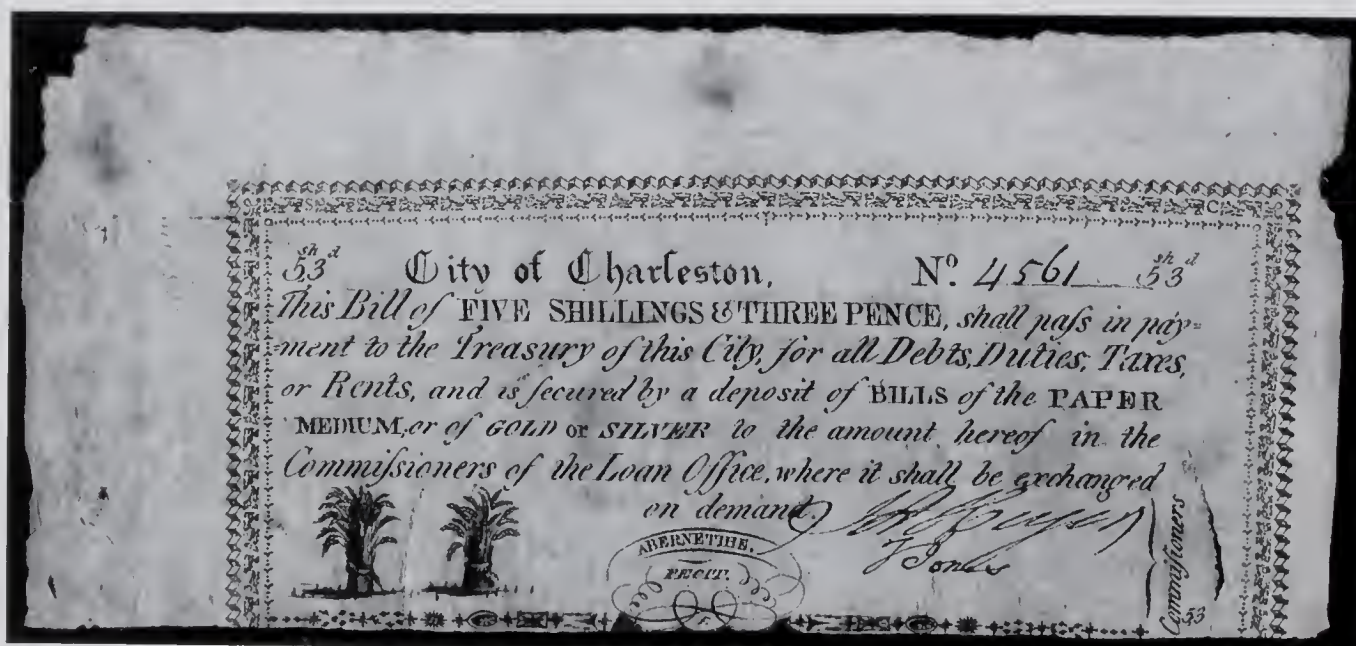 5 sh 3 d City of Charleston. No. 4561 5 sh 3 d
This Bill of FIVE SHILLINGS & THREE PENCE, shall paſs in pay=
=ment to the Treasury of this City, for all Debts, Duties, Taxes,
or Rents, and is ſecured by a deposit of BILLS of the PAPER
MEDIUM, or of GOLD or SILVER to the amount hereof in the
Commiſsioners of the Loan Office, where it shall be exchanged
on demand.
ABERNETHIE.
FECIT.
Commiſsioners
53